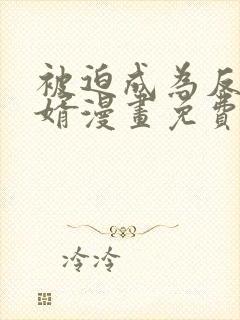 被迫成為反
婿漫畫免費
冷冷